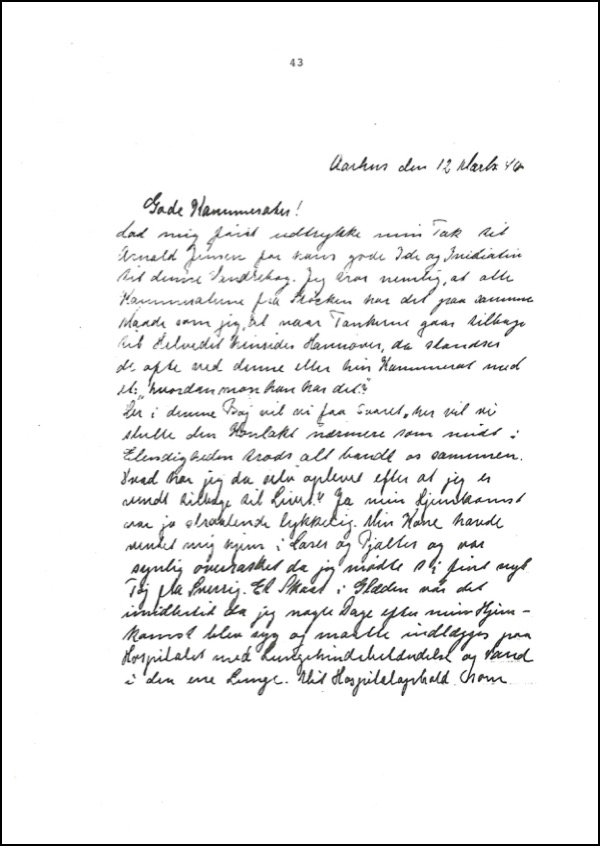 43
Aarhus den 12 Marts 46
Gode Kammerater!
Lad mig først udtrykke min Tak til
Arnald Jensen for hans gode Ide og Inidiativ
til denne Vandrebog. Jeg tror nemlig, at alle
Kammeraterne fra Stöcken har det paa samme
Maade som jeg, at naar Tankerne gaar tilbage
til Helvedet hinsides Hannover, da standser
de ofte ved denne eller hin Kammerat med
et: "hvordan mon han har det?"
Her i denne Bog vil vi faa Svaret, her vil vi
slutte den Kontakt nærmere som midt i
Elendigheden trods alt bandt os sammen.
Hvad har jeg da selv oplevet efter at jeg er
vendt tilbage til Livet? Ja min Hjemkomst
var jo straalende lykkelig. Min Kone havde
ventet mig hjem i Laser og Pjalter og var
synlig overrasket da jeg mødte i fint nyt
Tøj fra Sverrig. Et Skaar i Glæden var det
imidlertid da jeg nogle Dage efter min Hjem-
komst blev syg og maatte indlægges paa
Hospitalet med Lungehindebetændelse og Vand
i den ene Lunge. Mit Hospitalsophold som